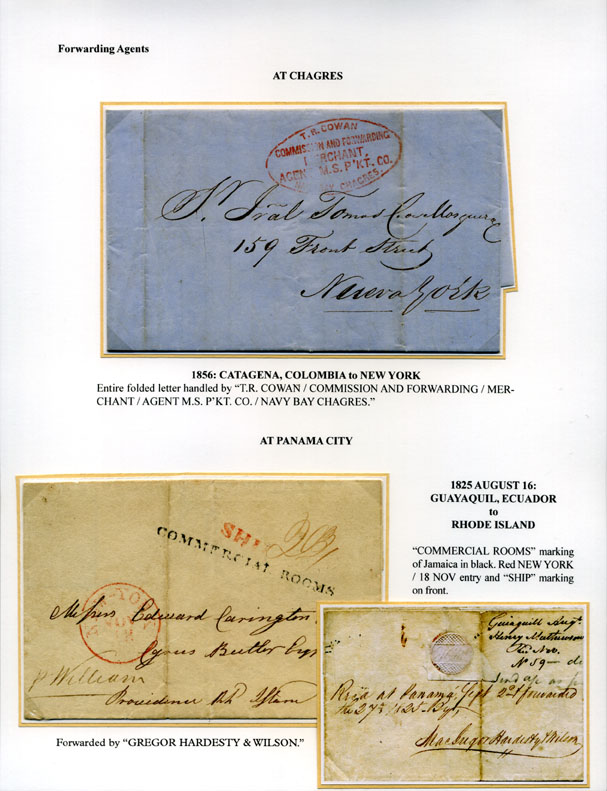 Forwarding Agents
AT CHAGRES
T.R. COWAN
COMMISSION AND FORWARDING
MERCHANT,
AGENT M.S. P'KT. CO.
NAVY BAY CHAGRES.
Sr. Gral Tomas C. de Mosquera
159 Front Street
Nueva York
1856: CATAGENA, COLOMBIA to NEW YORK
Entire folded letter handled by "T.R. COWAN / COMMISSION AND FORWARDING / MER-
CHANT / AGENT M.S. P'KT. CO. / NAVY BAY CHAGRES."
AT PANAMA CITY
SHIP
COMMERCIAL ROOMS
NEW-YORK
NOV
18
Messrs Edward Carington
Cyrus Butler Esqr
p William
Providence Rh Island
1825 AUGUST 16:
GUAYAQUIL, ECUADOR
to
RHODE ISLAND
"COMMERCIAL ROOMS" marking
of Jamaica in black. Red NEW YORK
/ 18 NOV entry and "SHIP" marking
on front.
Guiaquill Augt
Henry Mathewson
No 59
Rec'd at Panama Sept 2d & forwarded
the 27th /25 By
MacGregor Hardesty & Wilson
Forwarded by "GREGOR HARDESTY & WILSON."